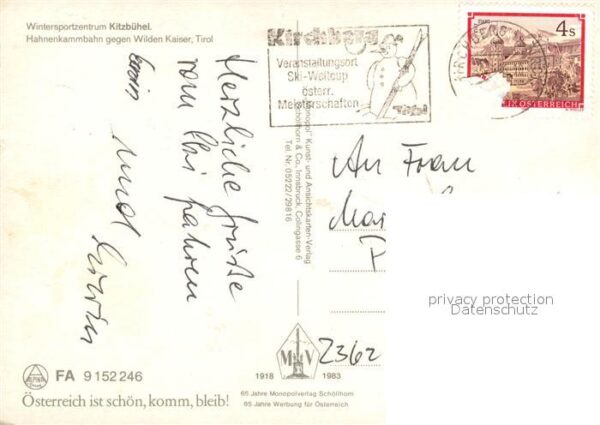 Wintersportzentrum Kitzbühel.
Hahnenkammbahn gegen Wilden Kaiser, Tirol
Kirchberg
Veranstaltungsort
Ski-Weltcup
österr.
Meisterschaften
Tirol
4 S
REPUBLIK ÖSTERREICH
Herzliche Grüße
vom Ski fahren
und
"Monopol" Kunst- und Ansichtskarten-Verlag
Schöllhorn & Co., Innsbruck, Colingasse 6
Tel. Nr. 05222/29816
An Frau
2362
privacy protection
Datenschutz
ALPINA
FA 9 152 246
Österreich ist schön, komm, bleib!
M V
1918 1983
65 Jahre Monopolverlag Schöllhorn
65 Jahre Werbung für Österreich